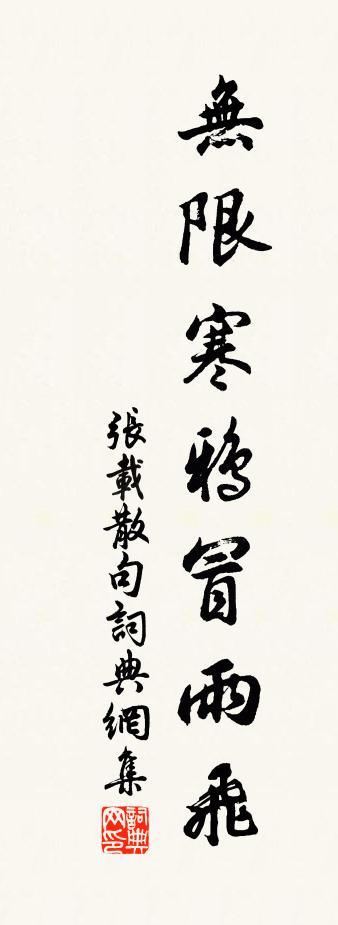 無限寒鴉冒雨飛
張載散句詞典網集
詞典
网印